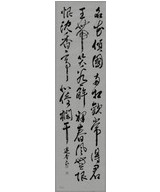 名花傾國兩相歡常得君
王帶笑看解釋春風無限
恨沈香亭北倚欄干